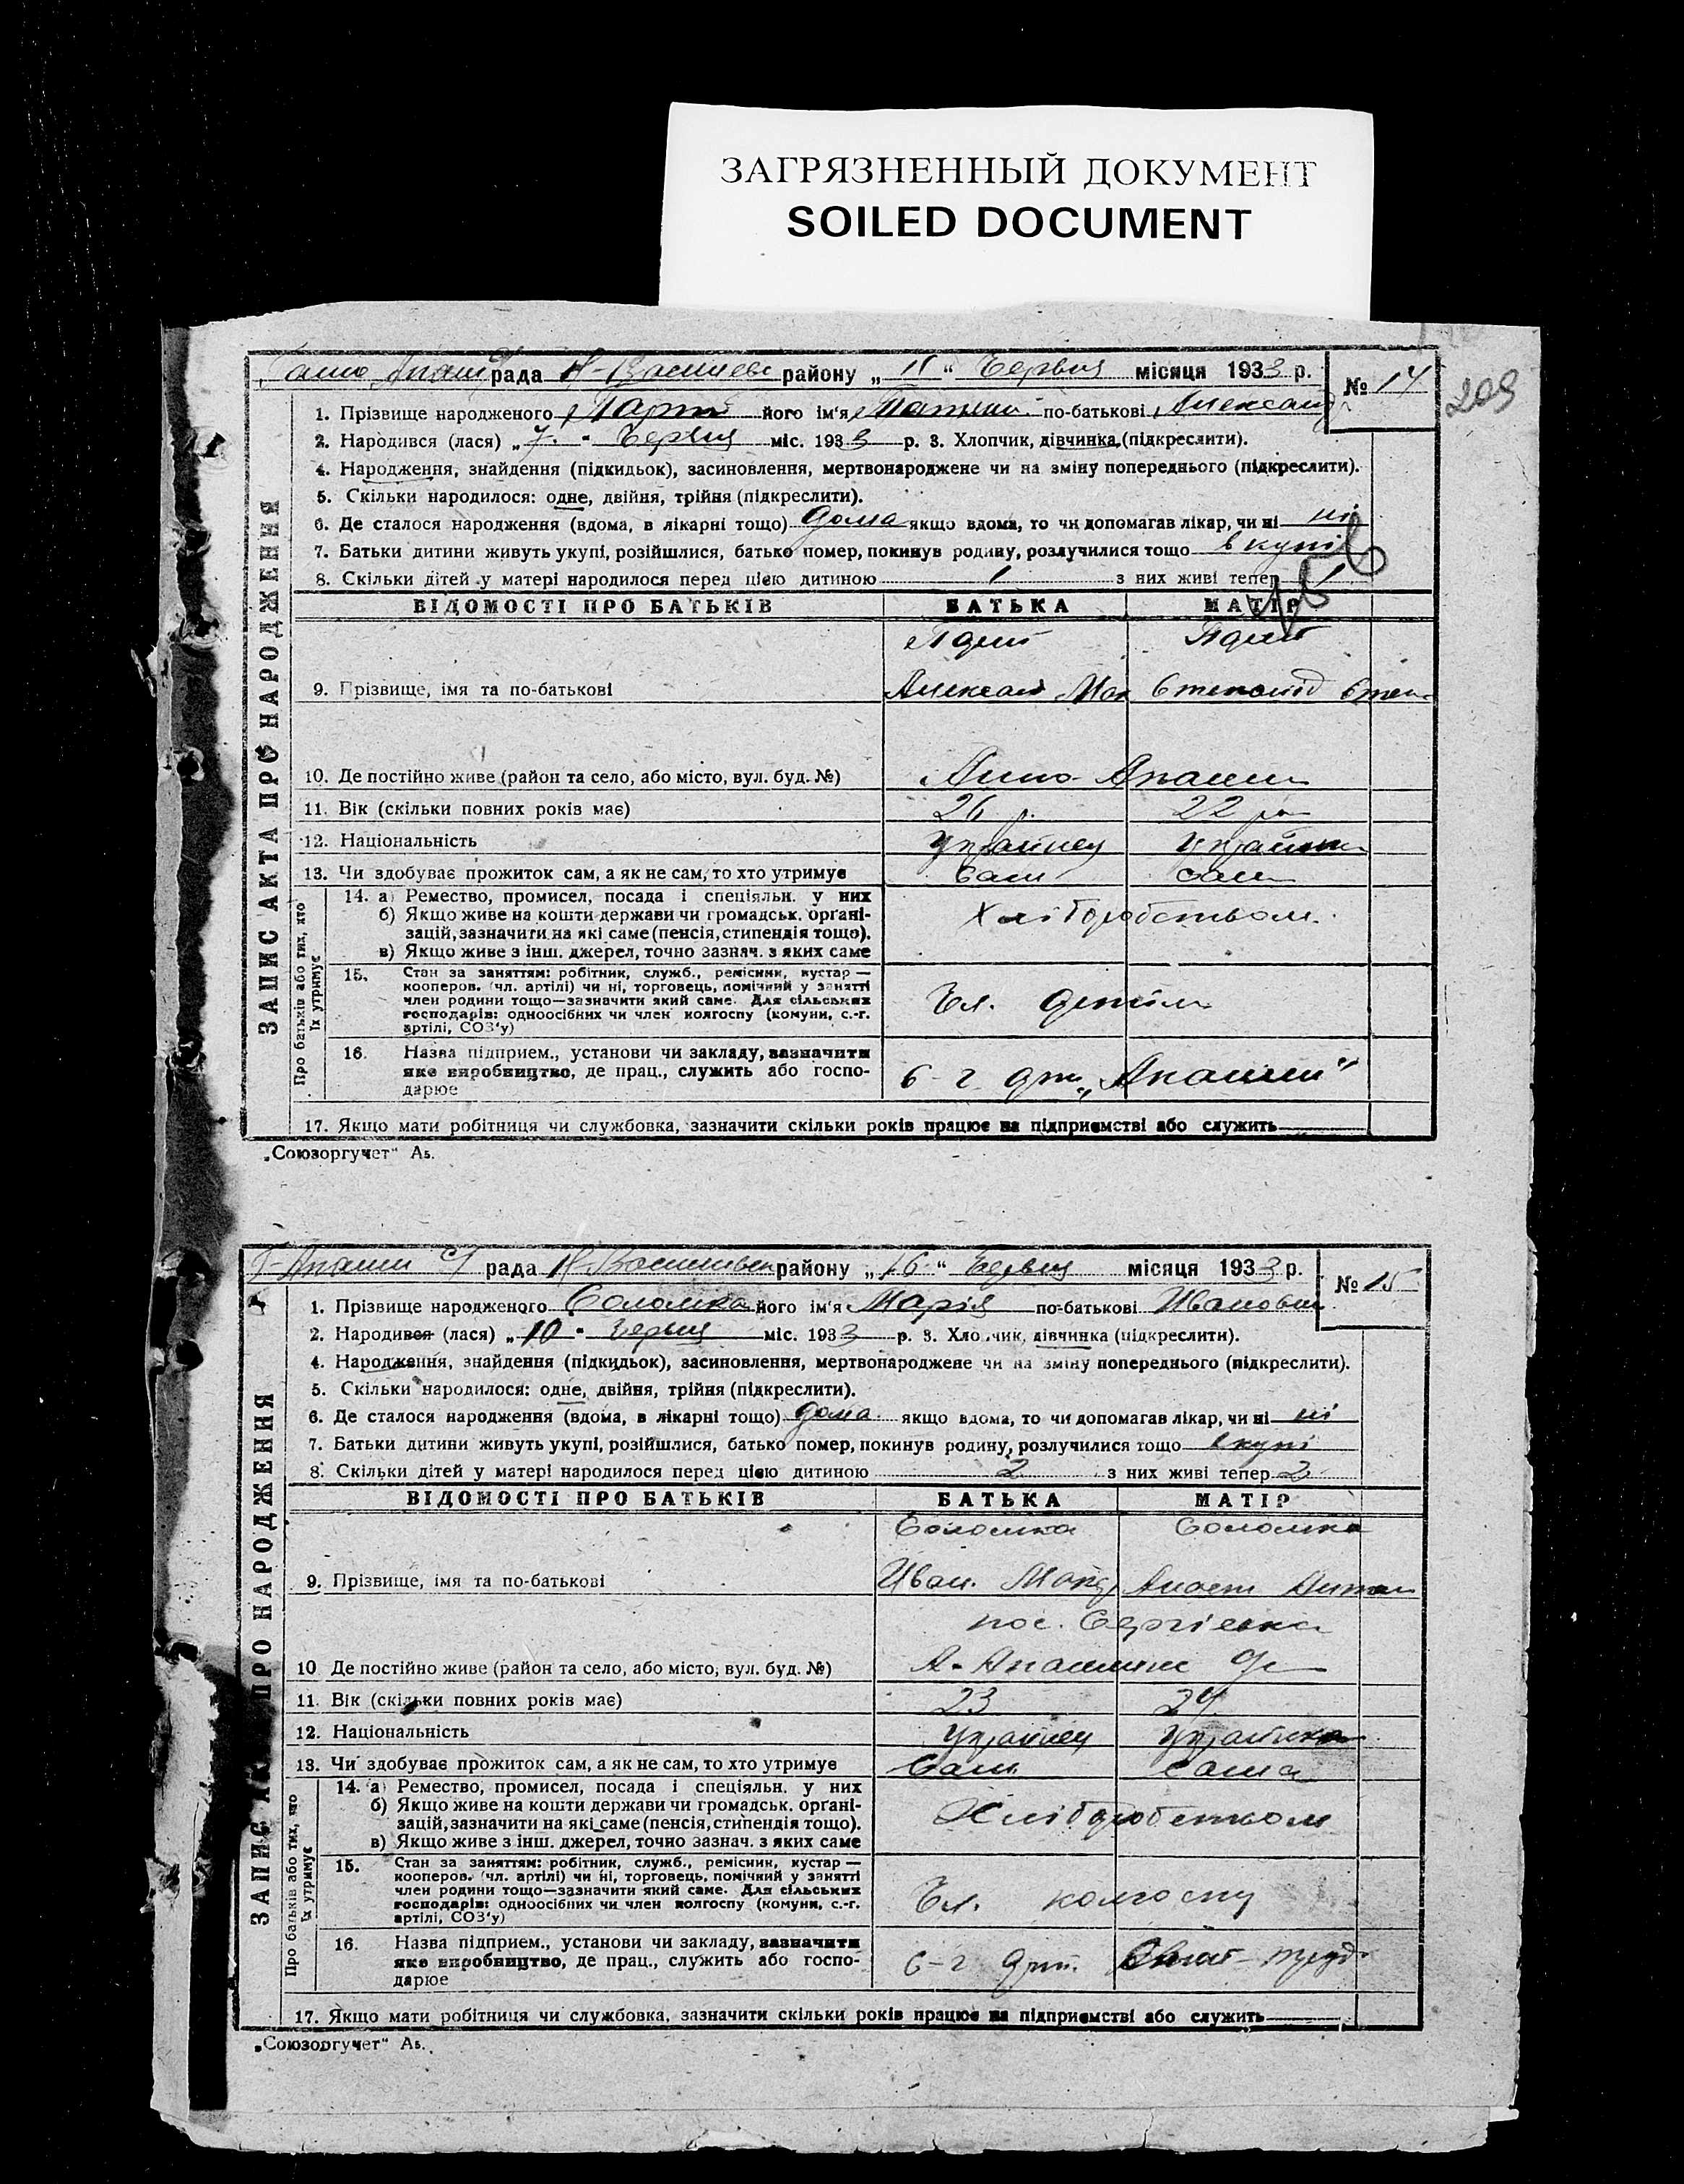 ЗАГРЯЗНЕННЫЙ ДОКУМЕНТ
SOILED DOCUMENT
209
рада Н-Василевс району „ 11 “ Червця місяця 1933 р. № 14
ЗАПИС АКТА ПРО НАРОДЖЕННЯ
1. Прізвище народженого його ім'я по-батькові Александ
2. Народився (лася) „ 7 “ Червця міс. 1933 р. 3. Хлопчик, дівчинка (підкреслити).
4. Народження, знайдення (підкидьок), засиновлення, мертвонароджене чи на зміну попереднього (підкреслити).
5. Скільки народилося: одне, двійня, трійня (підкреслити).
6. Де сталося народження (вдома, в лікарні тощо) дома якщо вдома, то чи допомагав лікар, чи ні ні
7. Батьки дитини живуть укупі, розійшлися, батько помер, покинув родину, розлучилися тощо вкупі
8. Скільки дітей у матері народилося перед цією дитиною 1 з них живі тепер 1
ВІДОМОСТІ ПРО БАТЬКІВ БАТЬКА МАТІР
9. Прізвище, імя та по-батькові
10. Де постійно живе (район та село, або місто, вул. буд. №)
11. Вік (скільки повних років має) 26 р. 22 р
12. Національність Українец Українка
13. Чи здобуває прожиток сам, а як не сам, то хто утримує Сам сам
Про батьків або тих, хто їх утримує
14. а) Ремество, промисел, посада і спеціяльн. у них
б) Якщо живе на кошти держави чи громадськ. орґані-
зацій, зазначити на які саме (пенсія, стипендія тощо).
в) Якщо живе з інш. джерел, точно зазнач. з яких саме
Хліборобством.
15. Стан за заняттям: робітник, служб., ремісник, кустар —
кооперов. (чл. артілі) чи ні, торговець, помічний у занятті
член родини тощо—зазначити який саме. Для сільських
господарів: одноосібних чи член колгоспу (комуни, с.-г.
артілі, СОЗ'у)
Чл. артіли
16. Назва підприєм., установи чи закладу, зазначити
яке виробництво, де прац., служить або госпо-
дарюе
с-г арт.
17. Якщо мати робітниця чи службовка, зазначити скільки років працює на підприємстві або служить
„Союзоргучет“ Аь.
рада Н-Васильев району „ 16 “ Червця місяця 1933 р. № 15
ЗАПИС АКТА ПРО НАРОДЖЕННЯ
1. Прізвище народженого Соломка його ім'я Марія по-батькові Ивановна
2. Народився (лася) „ 10 “ Червця міс. 1933 р. 3. Хлопчик, дівчинка (підкреслити).
4. Народження, знайдення (підкидьок), засиновлення, мертвонароджене чи на зміну попереднього (підкреслити).
5. Скільки народилося: одне, двійня, трійня (підкреслити).
6. Де сталося народження (вдома, в лікарні тощо) дома якщо вдома, то чи допомагав лікар, чи ні ні
7. Батьки дитини живуть укупі, розійшлися, батько помер, покинув родину, розлучилися тощо вкупі
8. Скільки дітей у матері народилося перед цією дитиною 2 з них живі тепер 2
ВІДОМОСТІ ПРО БАТЬКІВ БАТЬКА МАТІР
Соломка Соломка
9. Прізвище, імя та по-батькові Иван.
пос. Сергіевка
10. Де постійно живе (район та село, або місто, вул. буд. №)
11. Вік (скільки повних років має) 23 24
12. Національність Українец Українка
13. Чи здобуває прожиток сам, а як не сам, то хто утримує Сам сама
Про батьків або тих, хто їх утримує
14. а) Ремество, промисел, посада і спеціяльн. у них
б) Якщо живе на кошти держави чи громадськ. орґані-
зацій, зазначити на які саме (пенсія, стипендія тощо).
в) Якщо живе з інш. джерел, точно зазнач. з яких саме
Хліборобством
15. Стан за заняттям: робітник, служб., ремісник, кустар —
кооперов. (чл. артілі) чи ні, торговець, помічний у занятті
член родини тощо—зазначити який саме. Для сільських
господарів: одноосібних чи член колгоспу (комуни, с.-г.
артілі, СОЗ'у)
Чл. колгоспу
16. Назва підприєм., установи чи закладу, зазначити
яке виробництво, де прац., служить або госпо-
дарюе
с-г арт.
17. Якщо мати робітниця чи службовка, зазначити скільки років працює на підприємстві або служить
„Союзоргучет“ Аь.